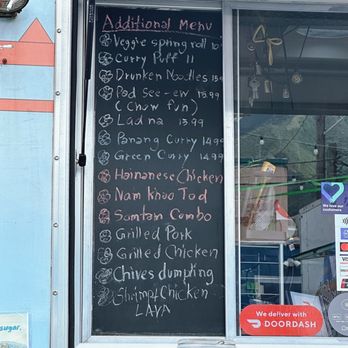 Additional Menu
Veggie spring roll 10
Curry Puff 11
Drunken Noodles 15.99
Pad See-ew 13.99
(Chow fun)
Lad na 13.99
Panang Curry 14.99
Green Curry 14.99
Hainanese Chicken
Nam Khao Tod
Somtam Combo
Grilled Pork
Grilled Chicken
Chives dumpling
Shrimp+Chicken
LAVA
We love our
customers
We deliver with
DOORDASH
VISA
sugar.